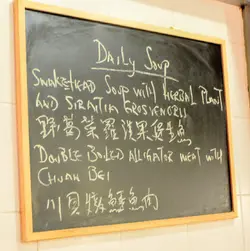 DAILY SOUP
SNAKEHEAD SOUP WITH HERBAL PLANT
AND SIRAITIA GROSVENORII
野葛菜羅漢果煲生魚
DOUBLE BOILED ALLIGATOR MEAT WITH
CHUAN BEI
川貝燉鱷魚肉